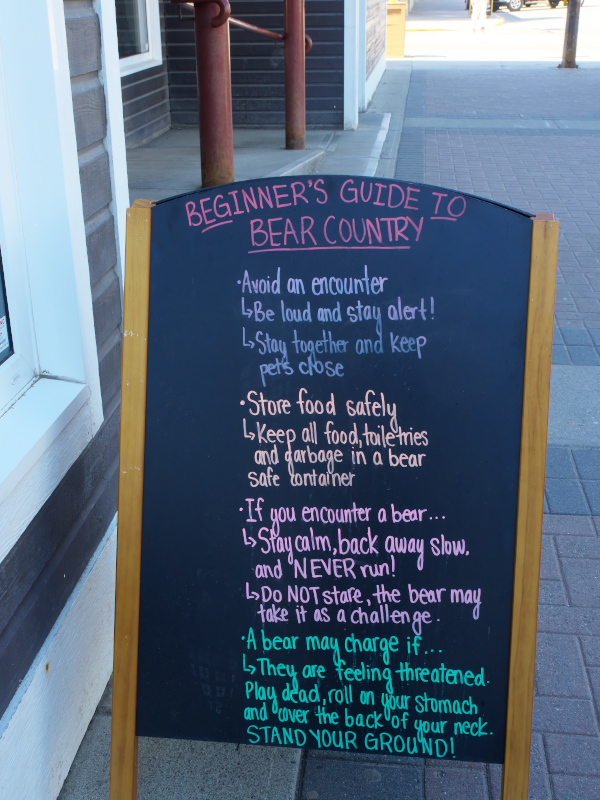 BEGINNER'S GUIDE TO
BEAR COUNTRY
·Avoid an encounter
↳Be loud and stay alert!
↳Stay together and keep
pets close
·Store food safely
↳Keep all food, toiletries
and garbage in a bear
safe container
·If you encounter a bear...
↳Stay calm, back away slow,
and NEVER run!
↳Do NOT stare, the bear may
take it as a challenge.
·A bear may charge if...
↳They are feeling threatened.
Play dead, roll on your stomach
and cover the back of your neck.
STAND YOUR GROUND!